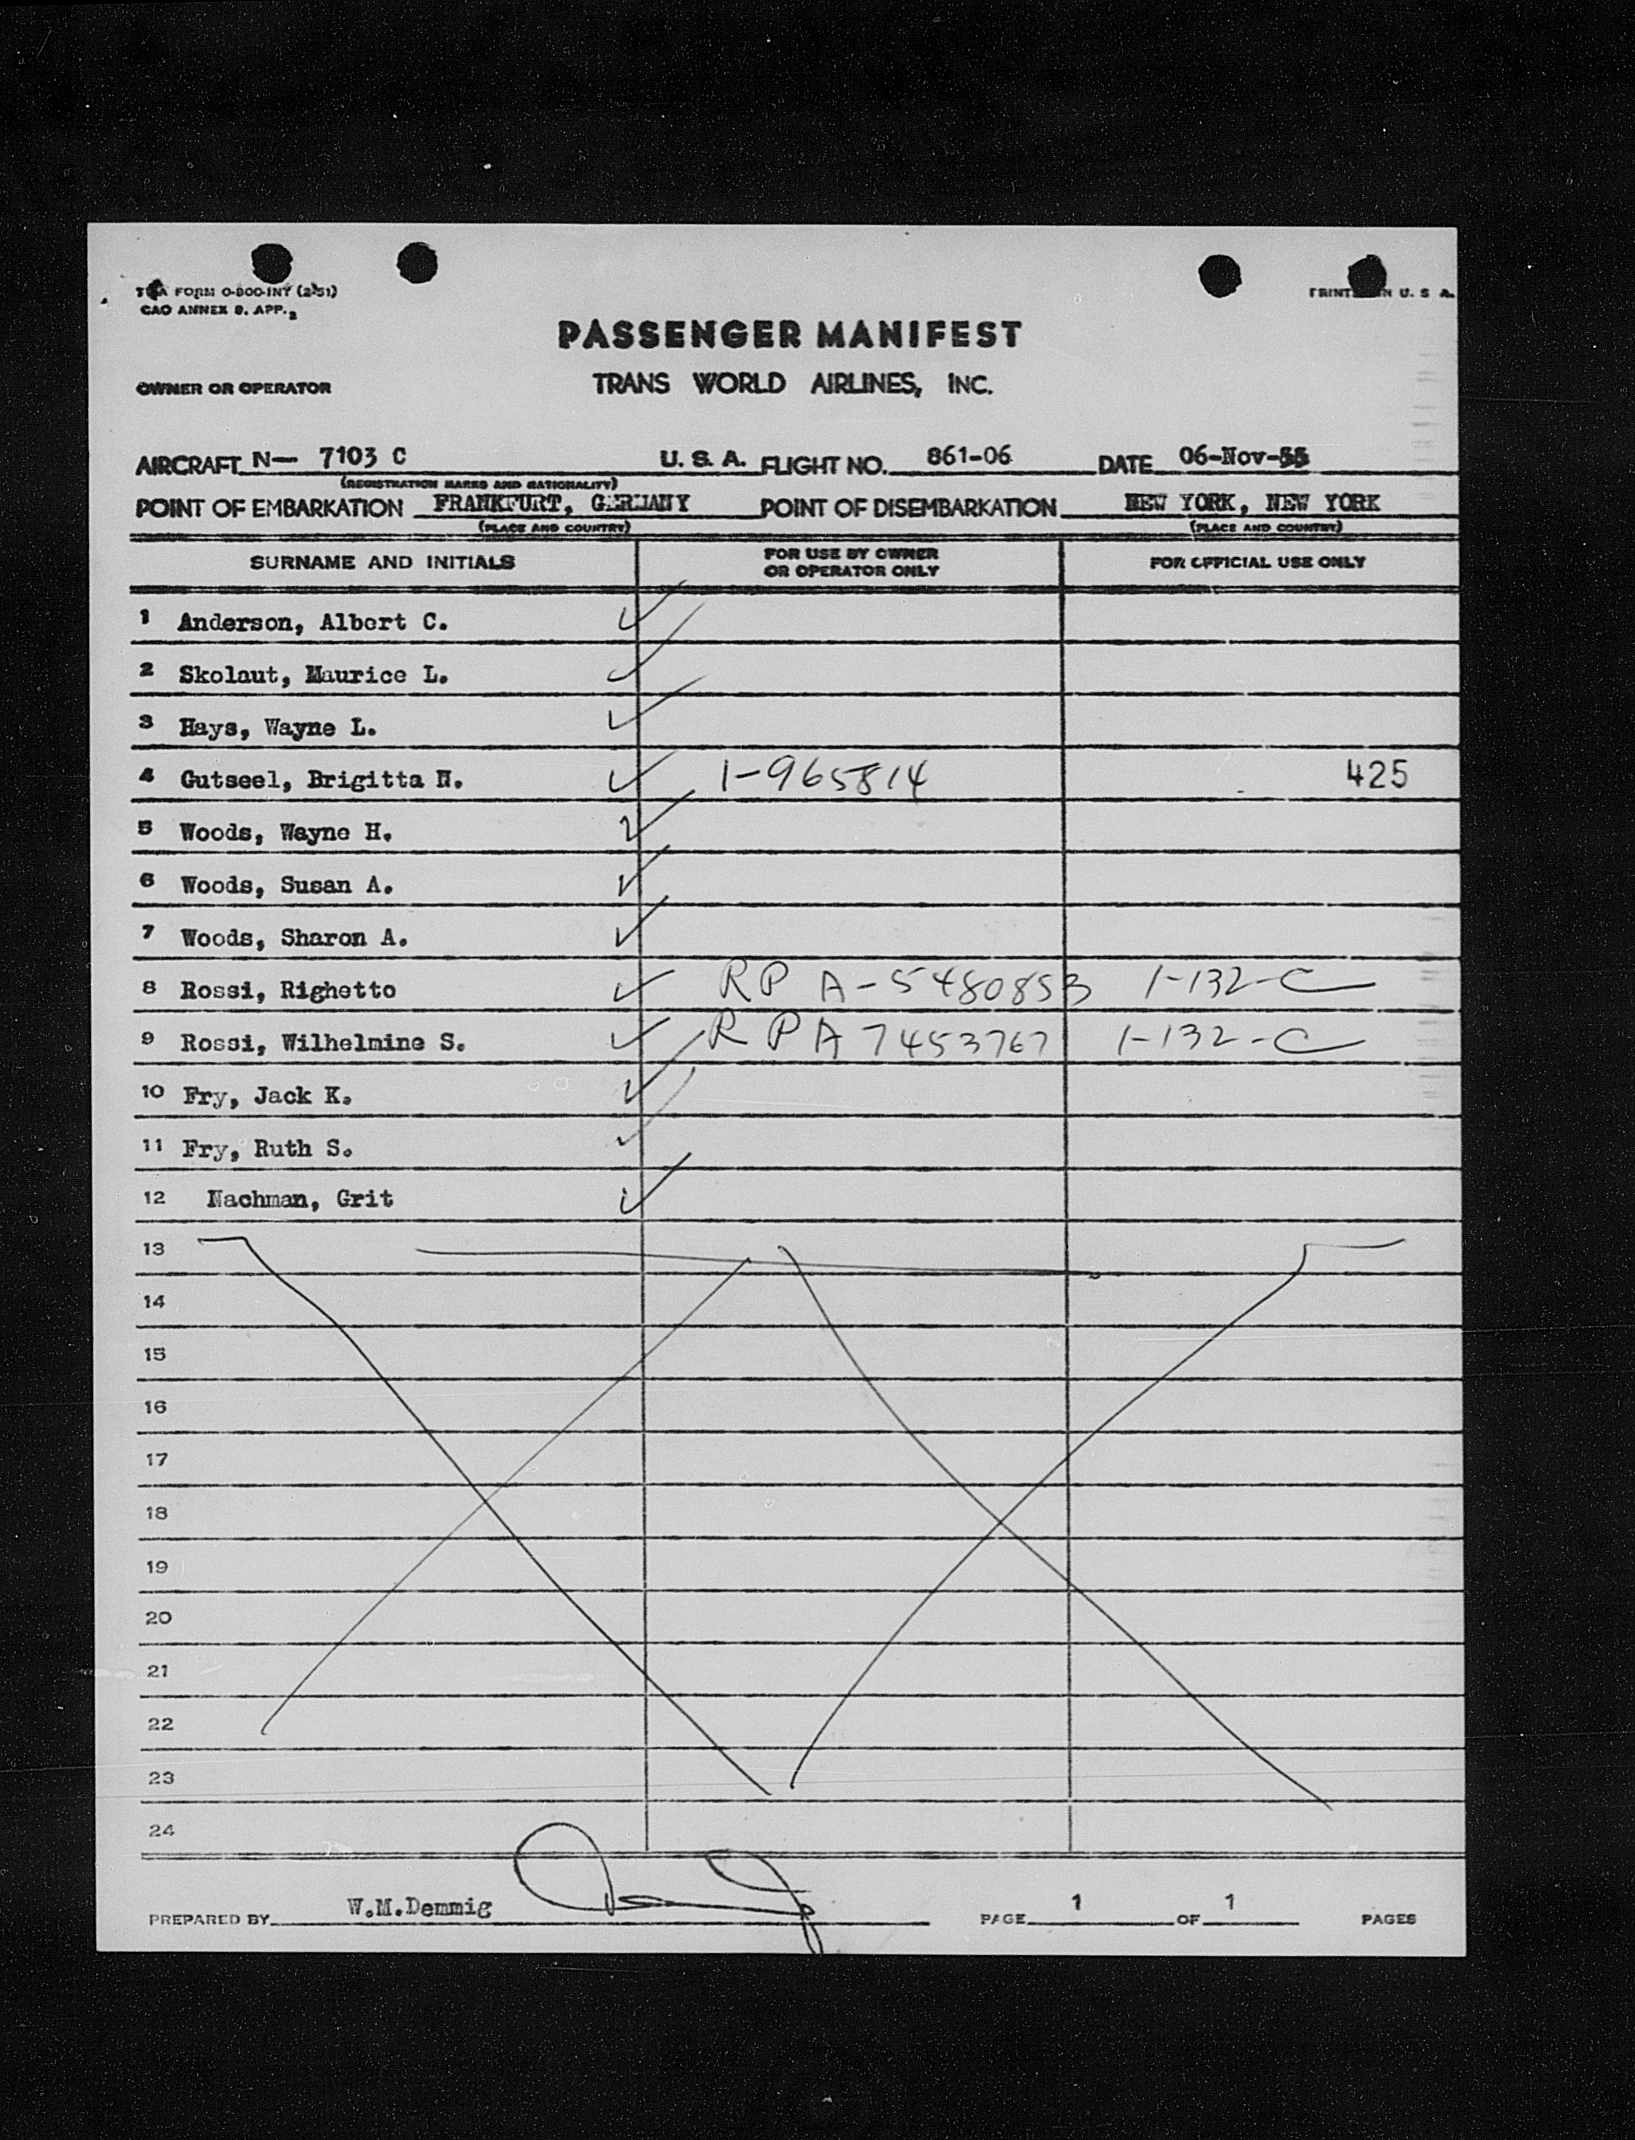 TWA FORM O-800-INT (2-51)
PRINTED IN U. S. A.
CAO ANNEX 9. APP. 2
PASSENGER MANIFEST
OWNER OR OPERATOR TRANS WORLD AIRLINES, INC.
AIRCRAFT N— 7103 C U. S. A. FLIGHT NO. 861-06 DATE 06-Nov-55
(REGISTRATION MARKS AND NATIONALITY)
POINT OF EMBARKATION FRANKFURT, GERMANY POINT OF DISEMBARKATION NEW YORK, NEW YORK
(PLACE AND COUNTRY) (PLACE AND COUNTRY)
SURNAME AND INITIALS FOR USE BY OWNER OR OPERATOR ONLY FOR OFFICIAL USE ONLY
1 Anderson, Albert C. ✓
2 Skolaut, Maurice L. ✓
3 Hays, Wayne L. ✓
4 Gutseel, Brigitta H. ✓ 1-965814 425
5 Woods, Wayne H. ✓
6 Woods, Susan A. ✓
7 Woods, Sharon A. ✓
8 Rossi, Righetto ✓ RP A-5480853 1-132-C
9 Rossi, Wilhelmine S. ✓ RP A 7453767 1-132-C
10 Fry, Jack K. ✓
11 Fry, Ruth S. ✓
12 Nachman, Grit ✓
13
14
15
16
17
18
19
20
21
22
23
24
PREPARED BY W.M.Demmig PAGE 1 OF 1 PAGES